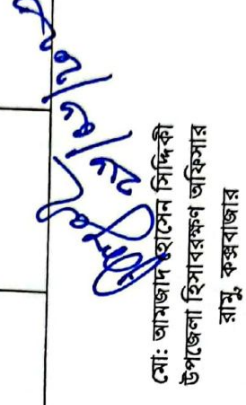 মো: আমজাদ হোসেন সিদ্দিকী
উপজেলা হিসাবরক্ষণ অফিসার
রামু, কক্সবাজার